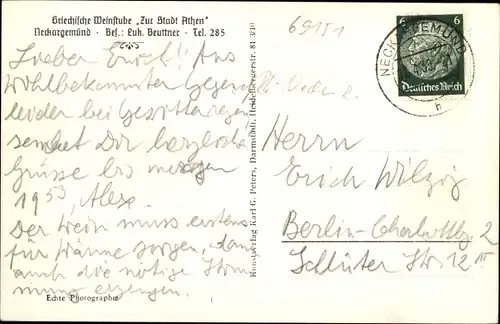 Griechische Weinstube "Zur Stadt Athen"
Neckargemünd · Bes.: Luk. Beuttner · Tel. 285
Lieber Erich! Aus
wohlbekannter Gegend
leider bei
sendet Dir herzlichste
Grüsse bis morgen
Alex.
Der Wein muss erstens
für Wärme sorgen, dann
auch die nötige Stim
mung erzeugen.
Echte Photographie
Kunstverlag Karl G. Peters, Darmstadt, Heidelbergerstr. 81
69151
6 6
Deutsches Reich
NECKARGEMÜND
b
Herrn
Erich Wilzig
Berlin-Charlottbg 2
Schlüter Str. 12